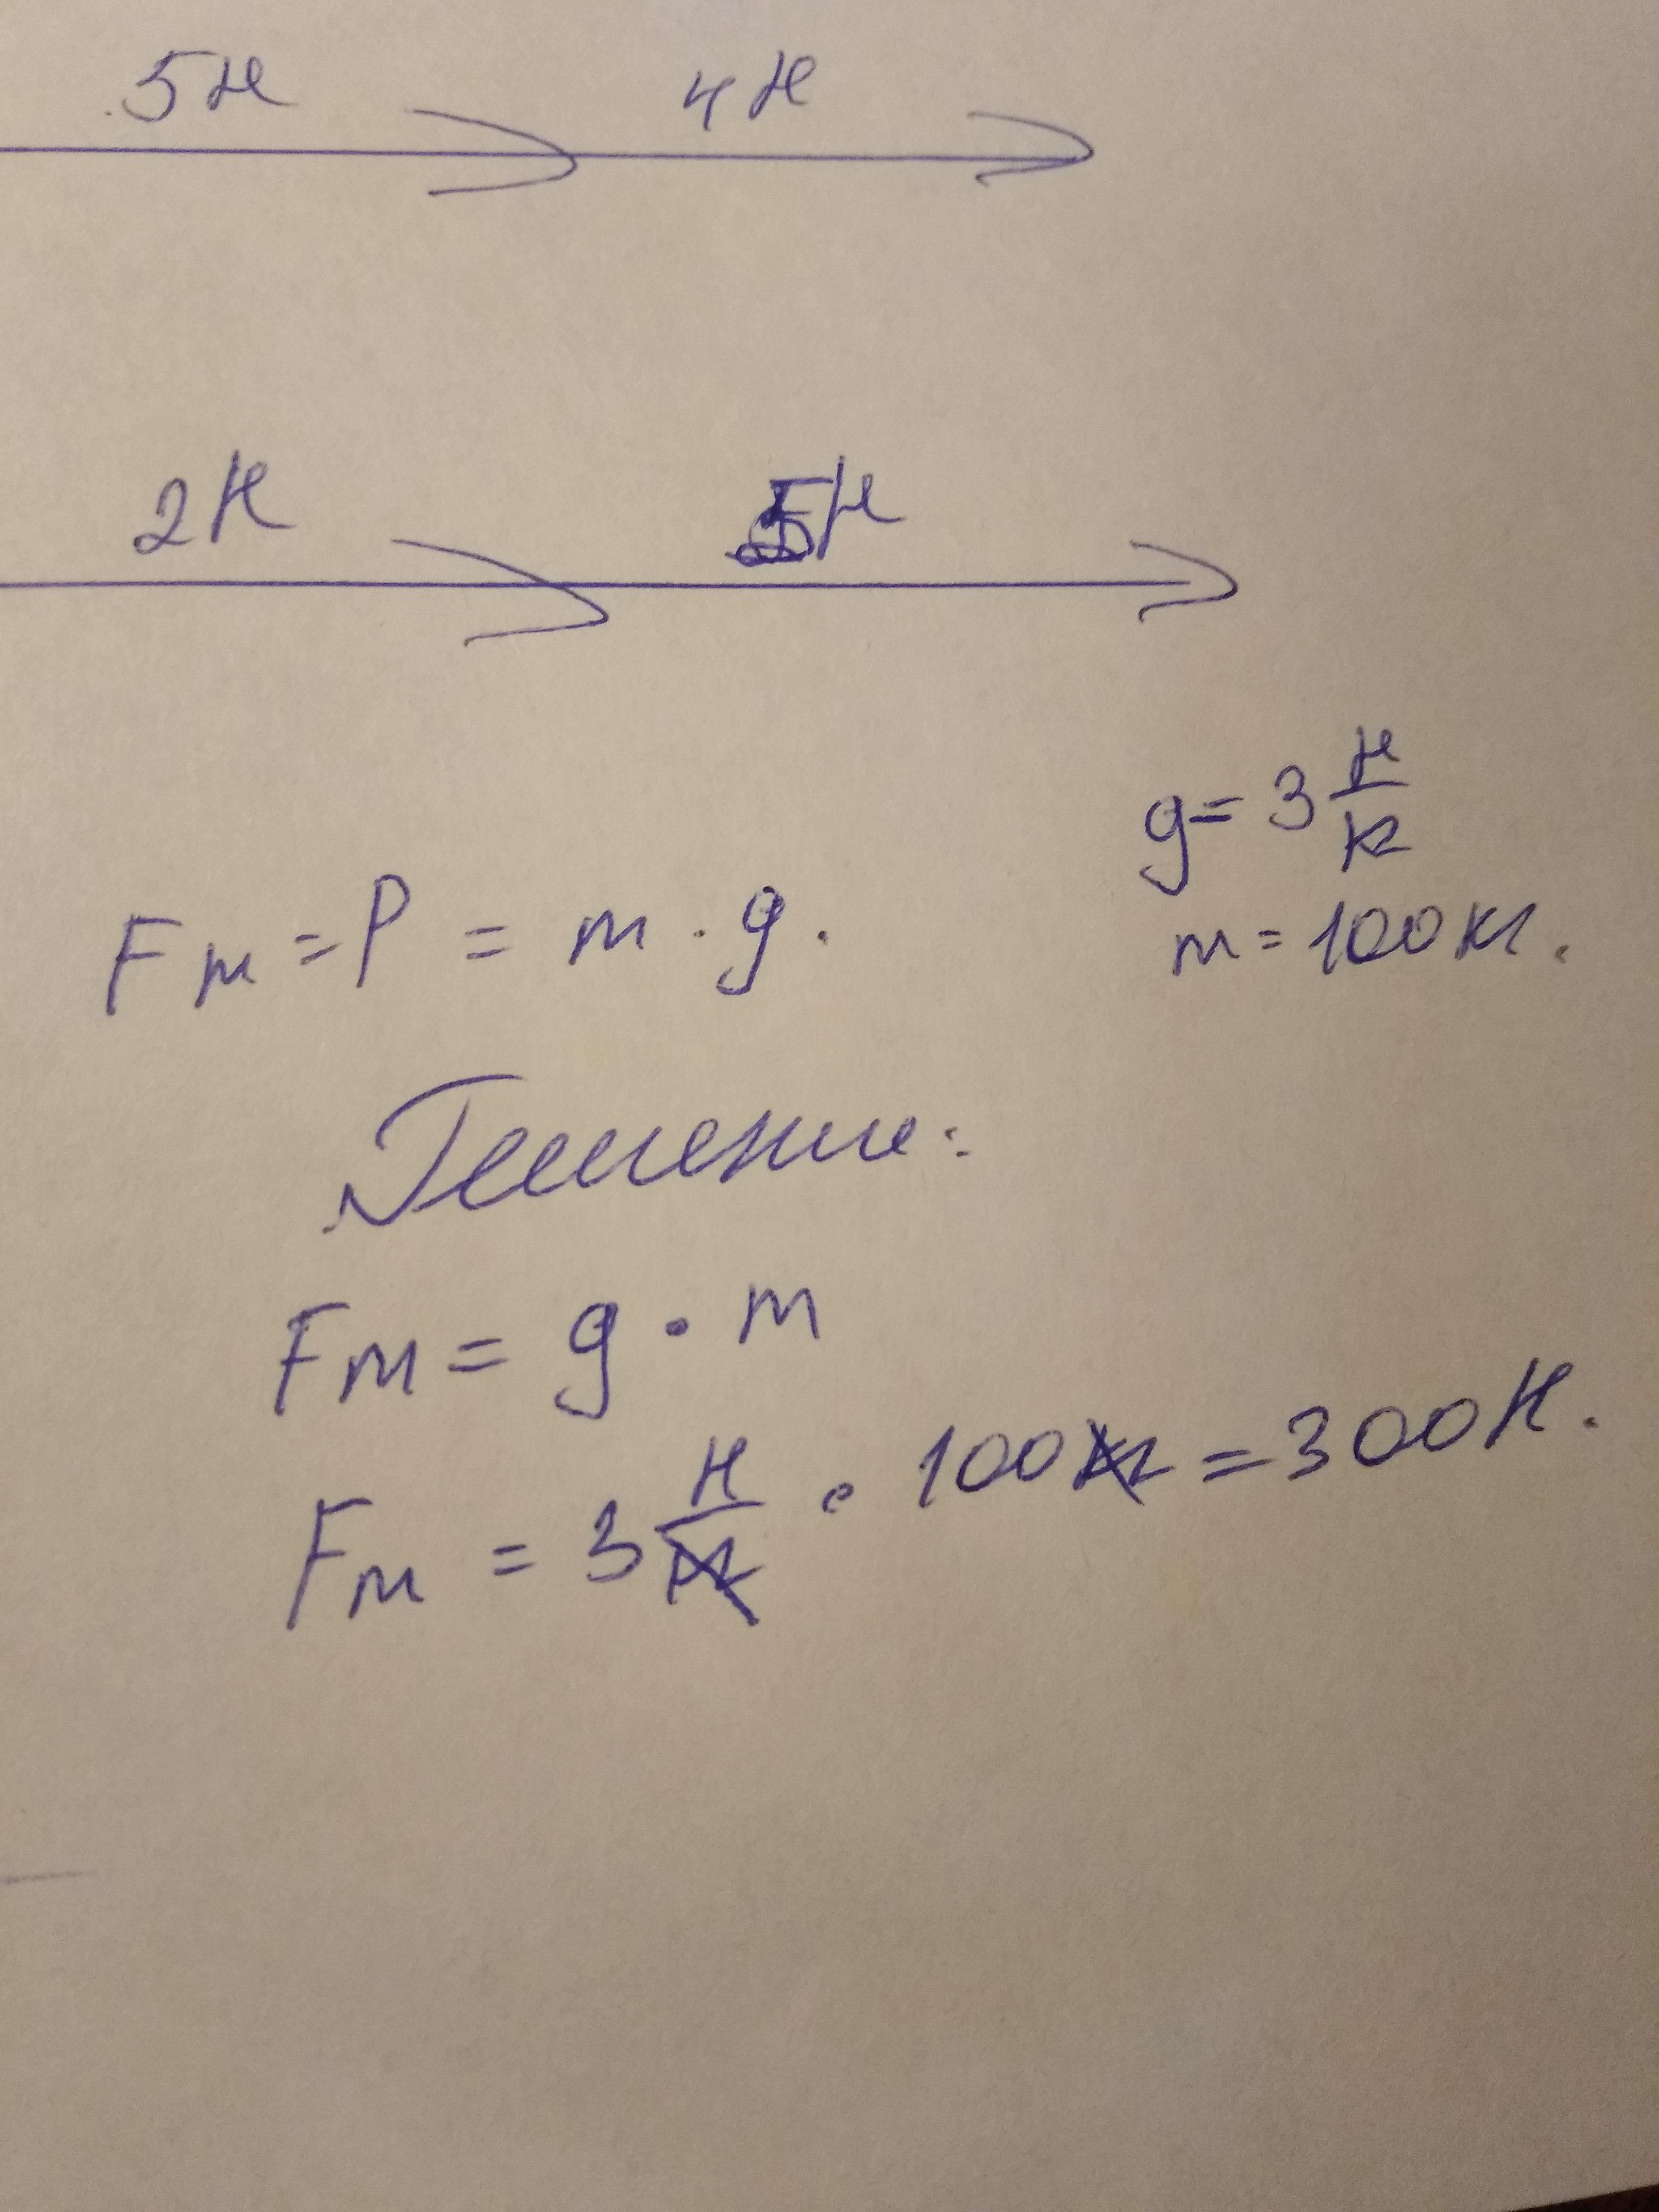 5н 4н
2Н 5н
g = 3 н/кг
Fт = P = m · g.
m = 100 кг.
Решение:
Fт = g · m
Fт = 3 Н/кг · 100кг = 300Н.